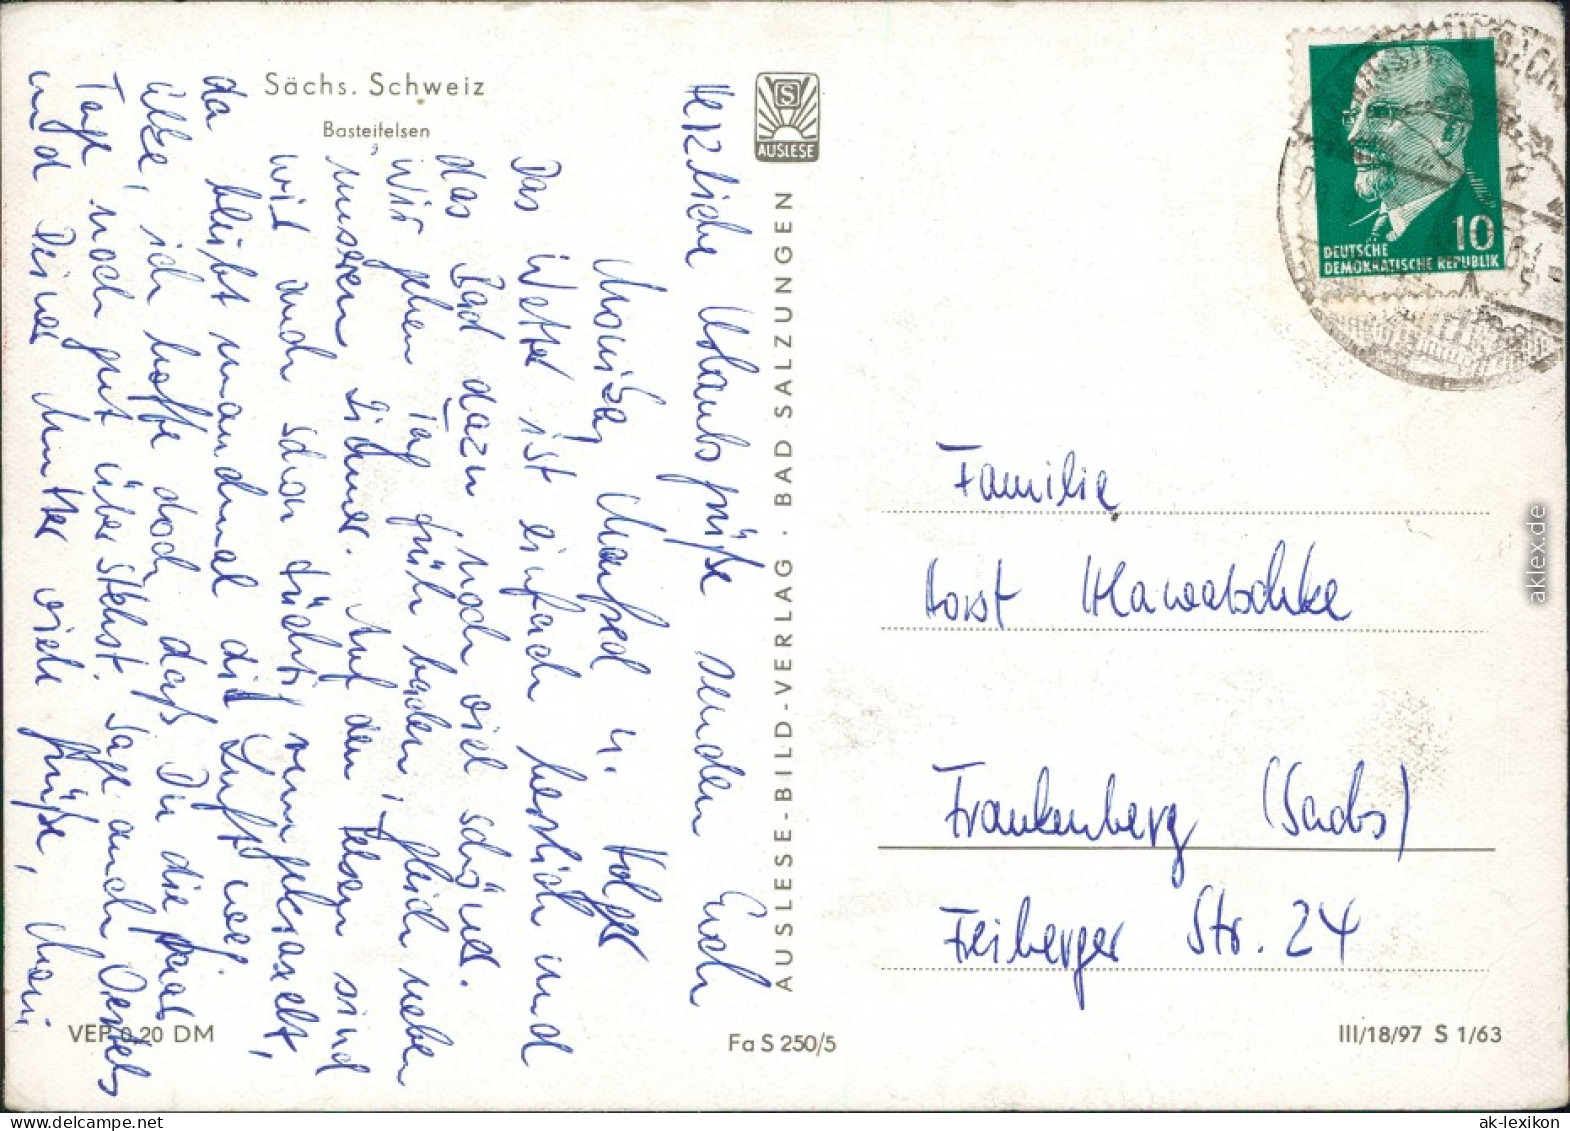 Sächs. Schweiz
Basteifelsen
AUSLESE
Herzliche Urlaubsgrüße senden Euch
Monika, Manfred u. Holger
Das Wetter ist einfach herrlich und
das Bad dazu noch viel schöner.
Wir gehen Tag früh baden, gleich neben
unserem Zimmer. Auf den Felsen sind
wir auch schon tüchtig rumgekraxelt,
da bleibt manchmal die Luft weg.
ich hoffe doch, daß Du die paar
Tage noch gut überstehst. Sage auch
und Deiner Mutter viele Grüße, Moni
AUSLESE-BILD-VERLAG · BAD SALZUNGEN
VEP 0,20 DM
Fa S 250/5
10
DEUTSCHE
DEMOKRATISCHE REPUBLIK
Familie
Horst
Frankenberg (Sachs)
Freiberger Str. 24
III/18/97 S 1/63
aklex.de
ak-lexikon